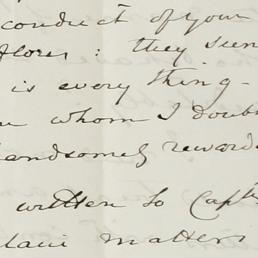 conduct of your
: they seem
is every thing -
whom I doubt
handsomely reward
written to Capt
matters